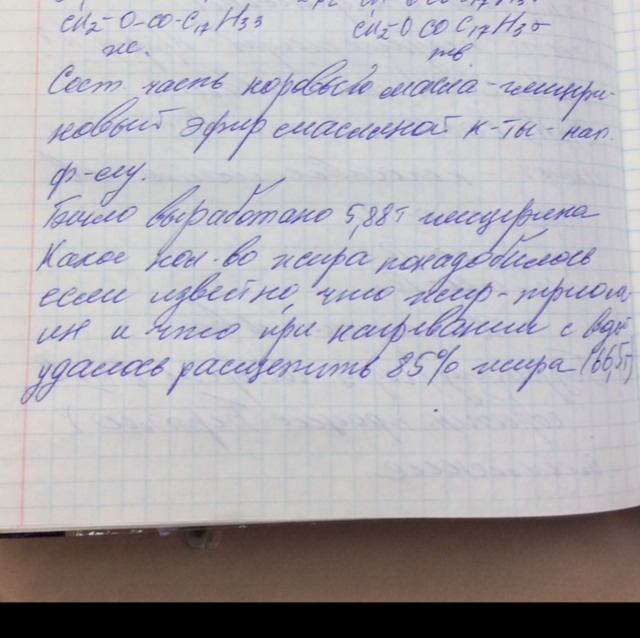 CH2-O-CO-C17H33 CH2-O CO C17H35
ж. тв
Сост. часть коровьего масла-глицери-
новый эфир масляной к-ты-нап.
ф-лу.
Было выработано 5,88т глицерина
Какое кол-во жира понадобилось
если известно, что жир-триоле-
ин и что при нагревании с водой
удалось расщепить 85% жира (66,5т)